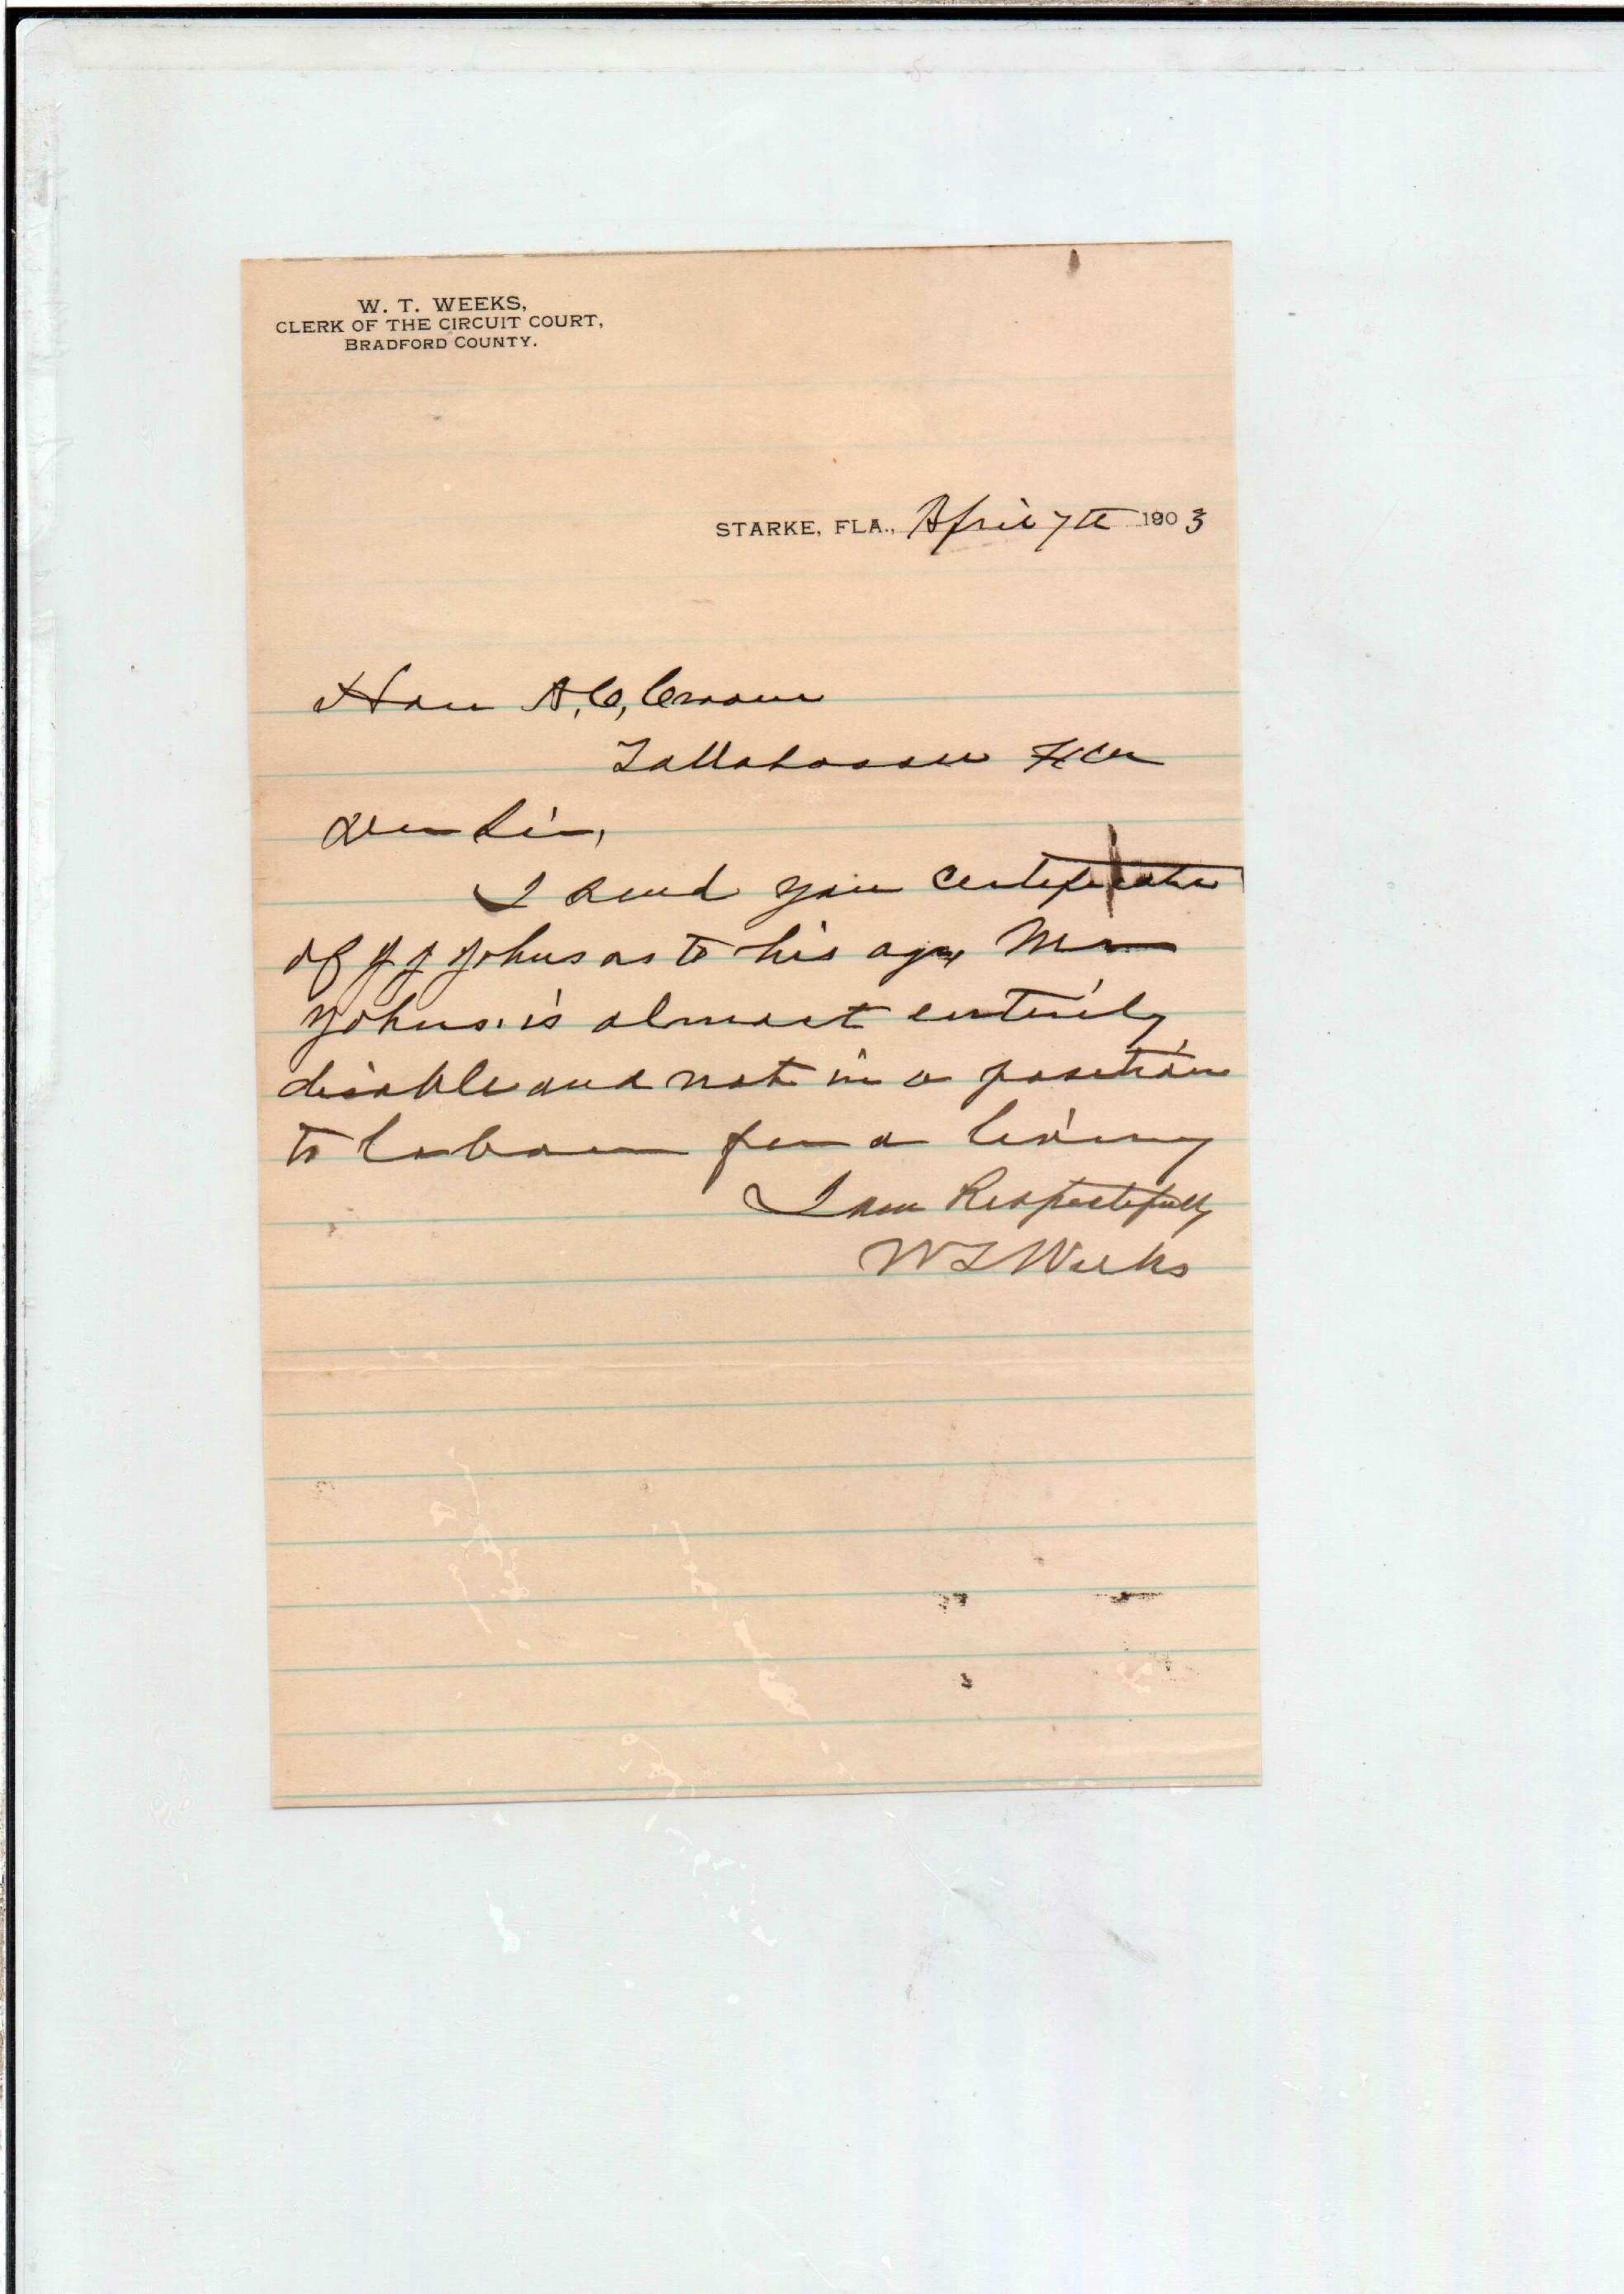 W. T. WEEKS,
CLERK OF THE CIRCUIT COURT,
BRADFORD COUNTY.
STARKE, FLA., April 7th 1903
Hon A. C. Croom
Tallahassee Fla
Dear Sir,
I send you Certificate
of J J Johns as to his age, Mr
Johns. is almost entirely
disable and not in a position
to labour for a living
I am Respectfully
W T Weeks